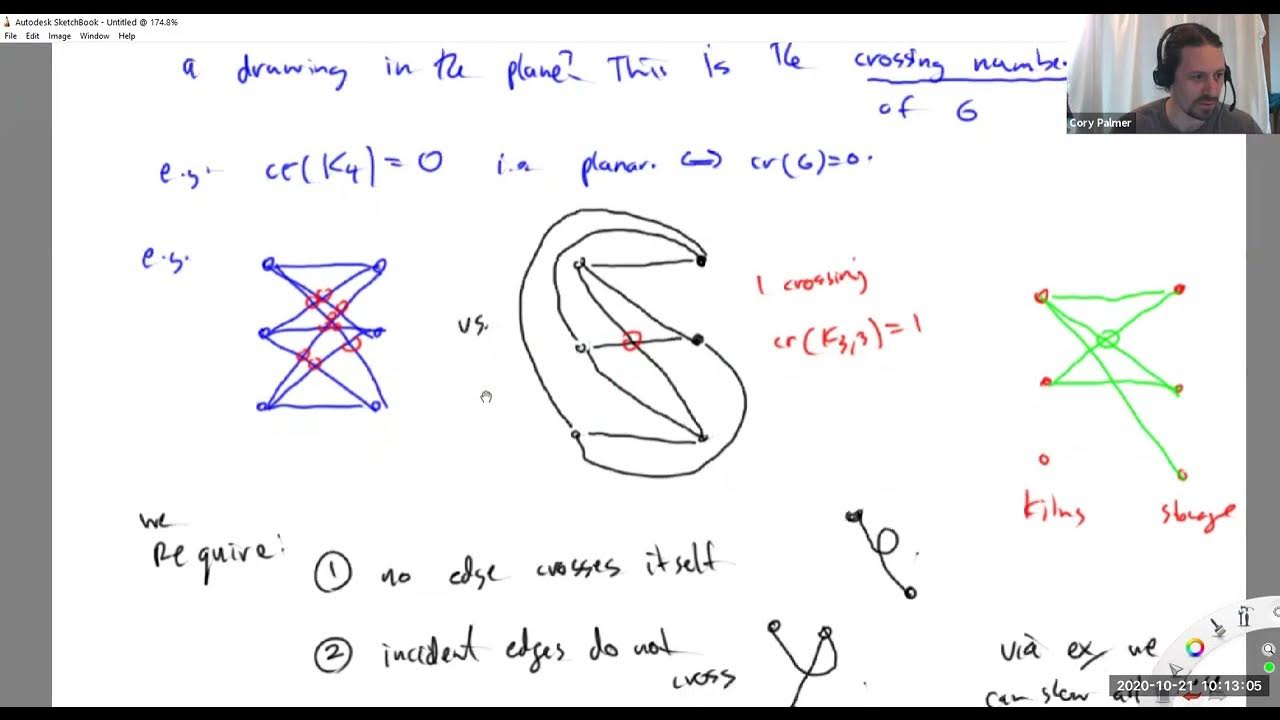 Autodesk SketchBook - Untitled @ 174.8%
File Edit Image Window Help
a drawing in the plane? This is the crossing number
of G
Cory Palmer
e.g. cr(K4) = 0 i.e. planar. ⟺ cr(G)=0.
e.g.
vs.
1 crossing
cr(K3,3) = 1
kilns storage
we
Require:
① no edge crosses itself
② incident edges do not
cross
via ex, we
can
2020-10-21 10:13:05